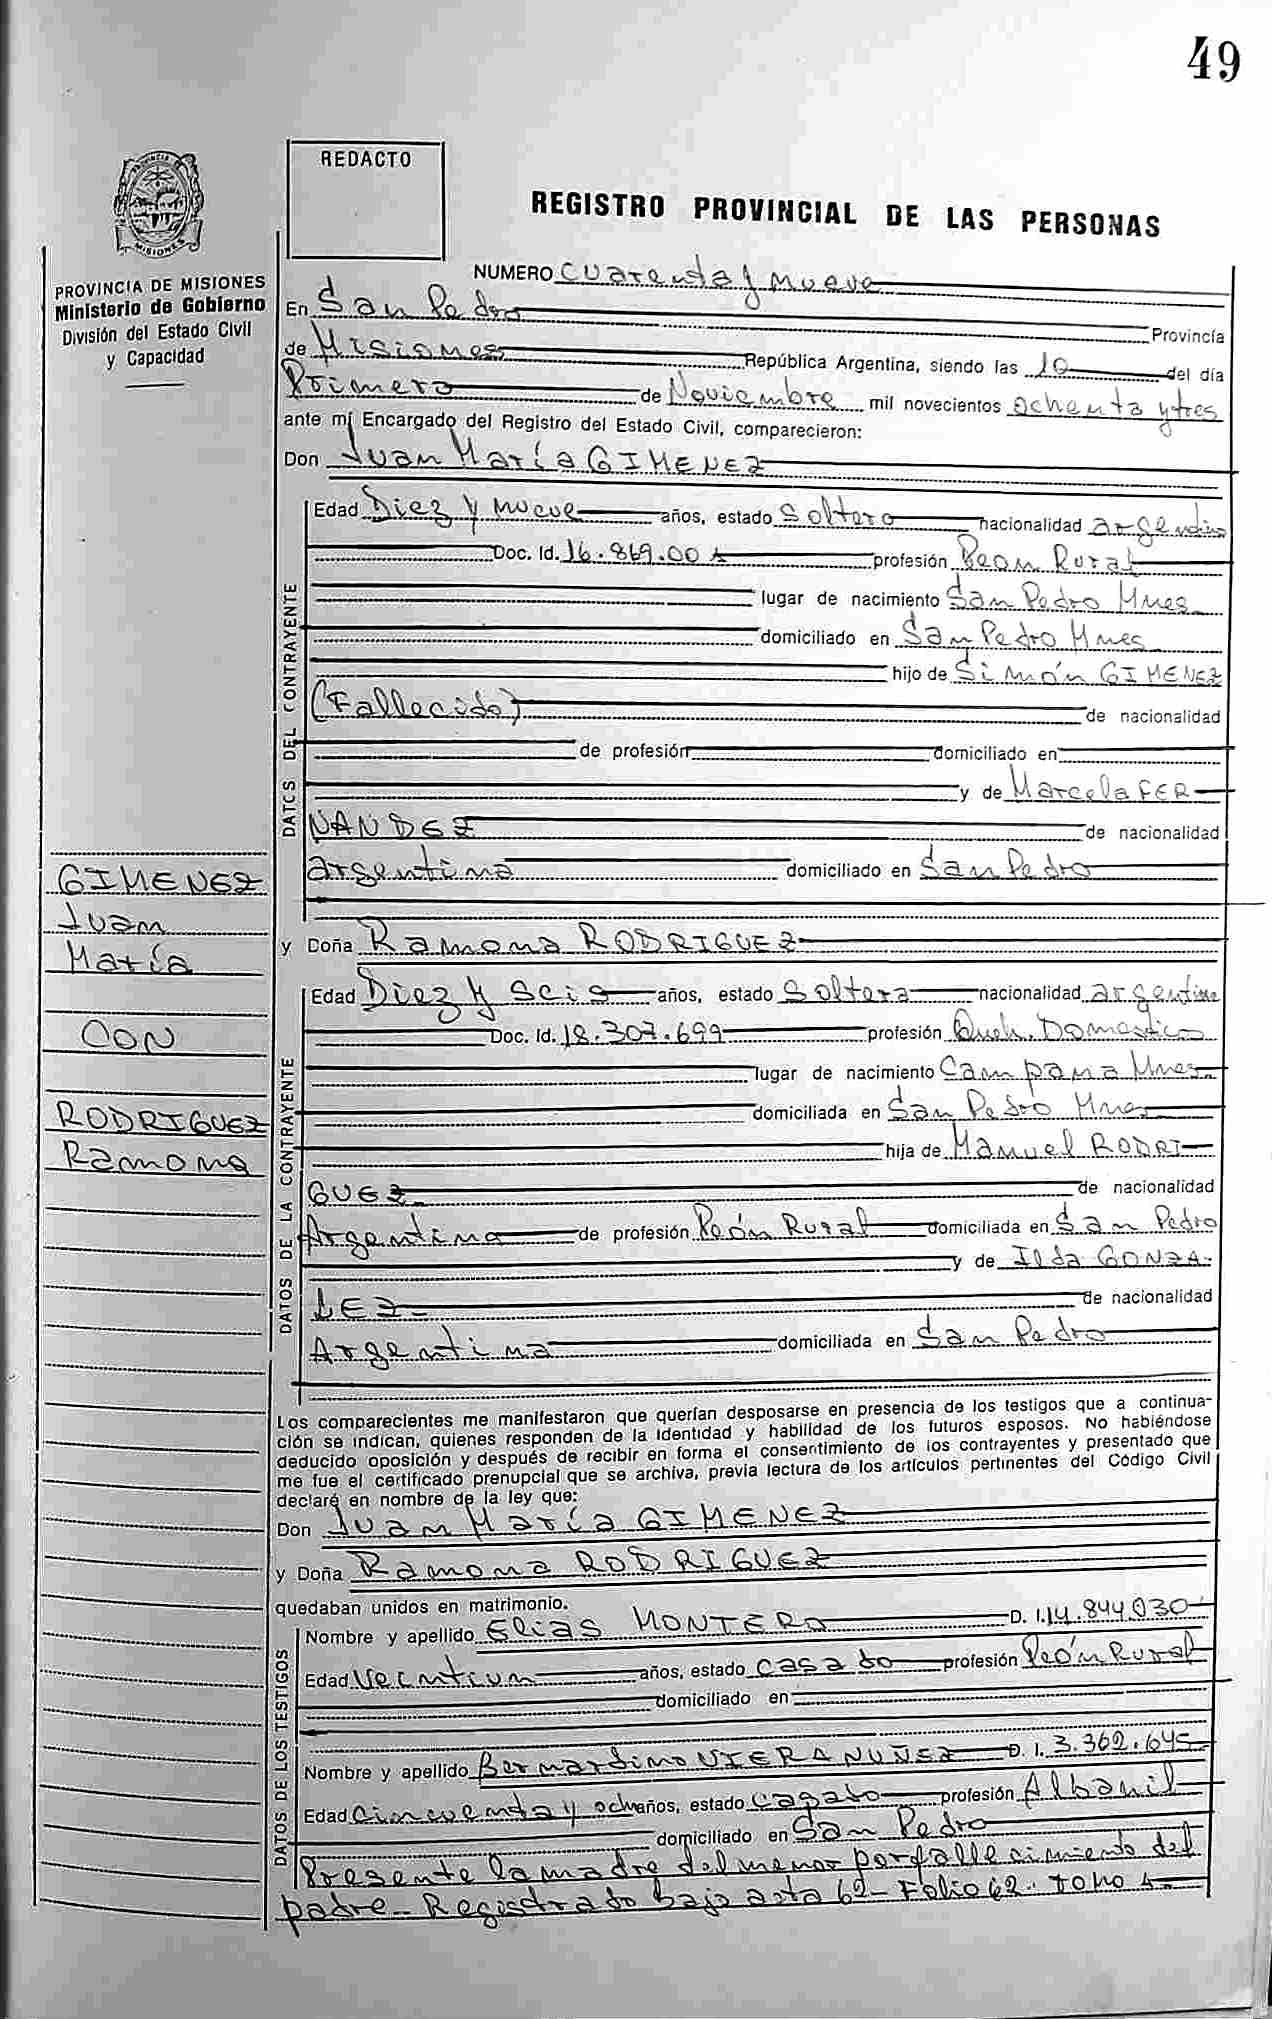 49
REDACTO
REGISTRO PROVINCIAL DE LAS PERSONAS
PROVINCIA DE MISIONES
Ministerio de Gobierno
División del Estado Civil
y Capacidad
NUMERO Cuarenta y nueve
En San Pedro Provincia
de Misiones República Argentina, siendo las 10 del día
Primero de Noviembre mil novecientos ochenta y tres
ante mí Encargado del Registro del Estado Civil, comparecieron:
Don Juan María GIMENEZ
DATOS DEL CONTRAYENTE
Edad Diez y nueve años, estado Soltero nacionalidad argentina
Doc. Id. 16.869.00 profesión Peon Rural
lugar de nacimiento San Pedro Mnes
domiciliado en San Pedro Mnes
hijo de Simón GIMENEZ
(Fallecido) de nacionalidad
de profesión domiciliado en
y de Marcela FER
NANDEZ de nacionalidad
argentina domiciliado en San Pedro
GIMENEZ
Juan
María
CON
RODRIGUEZ
Ramona
y Doña Ramona RODRIGUEZ
DATOS DE LA CONTRAYENTE
Edad Diez y seis años, estado Soltera nacionalidad argentina
Doc. Id. 18.307.699 profesión Queh. Domestico
lugar de nacimiento Campana Mnes.
domiciliada en San Pedro Mnes
hija de Manuel RODRI
GUEZ de nacionalidad
Argentina de profesión Peón Rural domiciliada en San Pedro
y de Ilda GONZA-
LEZ- de nacionalidad
Argentina domiciliada en San Pedro
Los comparecientes me manifestaron que querían desposarse en presencia de los testigos que a continua-
ción se indican, quienes responden de la identidad y habilidad de los futuros esposos. No habiéndose
deducido oposición y después de recibir en forma el consentimiento de los contrayentes y presentado que
me fue el certificado prenupcial que se archiva, previa lectura de los artículos pertinentes del Código Civil
declaré en nombre de la ley que:
Don Juan María GIMENEZ
y Doña Ramona RODRIGUEZ
quedaban unidos en matrimonio.
DATOS DE LOS TESTIGOS
Nombre y apellido Elias MONTERO D. I. 14.844.030
Edad Veintiun años, estado casado profesión Peón Rural
domiciliado en
Nombre y apellido Bernardino VIERA NUÑEZ D. I. 3.362.645
Edad Cincuenta y ocho años, estado casado profesión Albanil
domiciliado en San Pedro
Presente la madre del menor por fallecimiento del
padre- Registrado bajo acta 62- Folio 62. TOMO